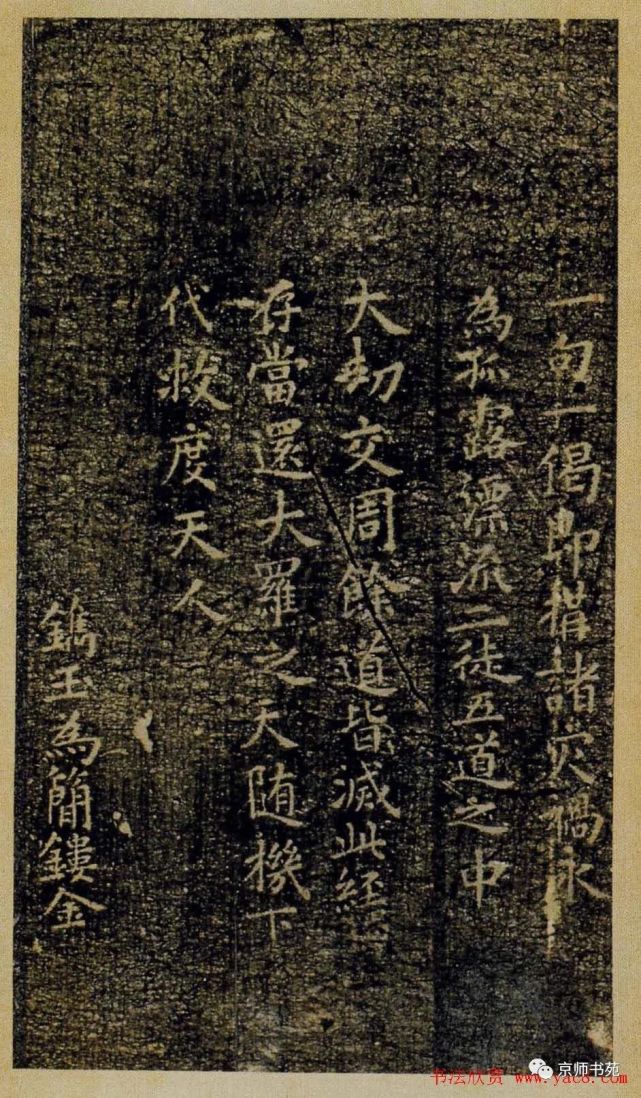 一句一偈即構諸灾禍永
為孤露漂流二徒五道之中
大劫交周餘道皆滅此經
存當還大羅之天随機下
代救度天人
鐫玉為簡鏤金
京师书苑
书法欣赏 www.yac8.com